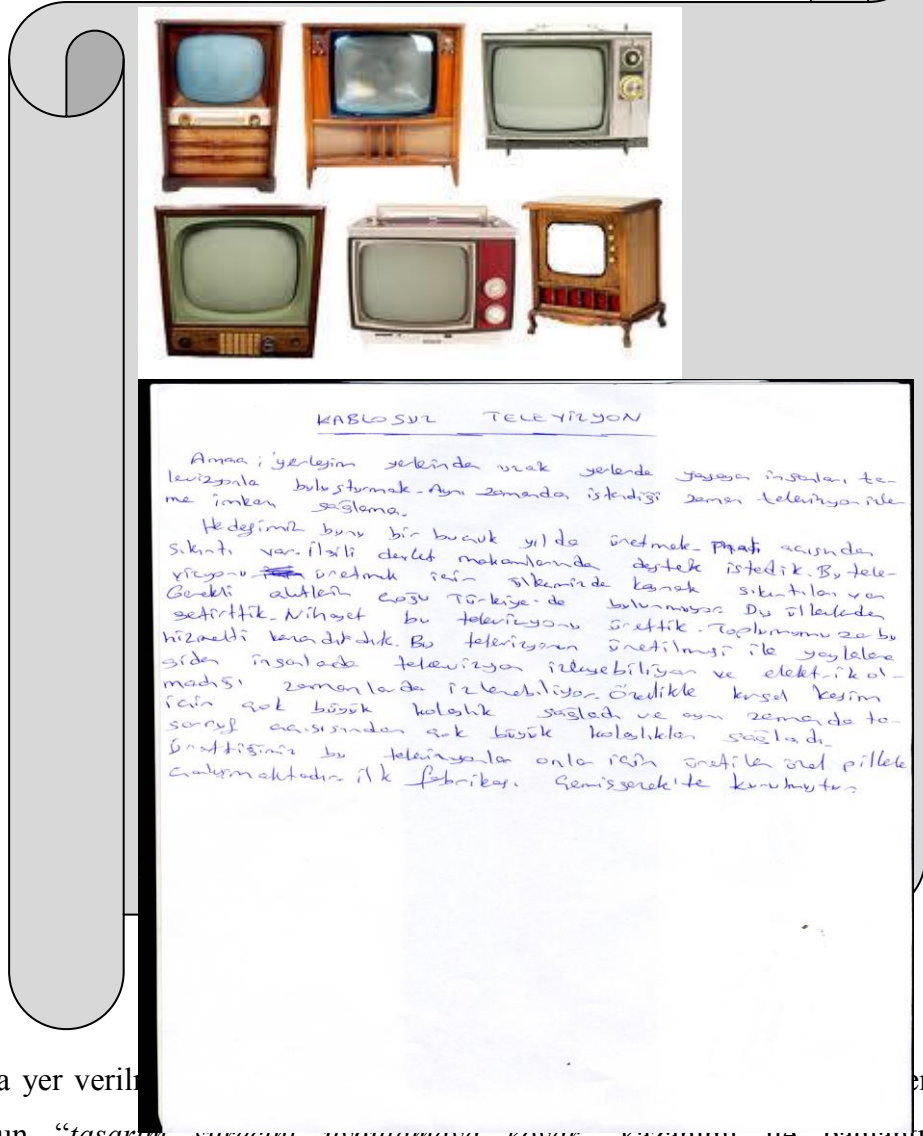 KABLOSUZ TELEVİZYON
Amacı; yerleşim yerlerinden uzak yerlerde yaşayan insanları te-
levizyonla buluşturmak. Aynı zamanda istendiği zaman televizyon izle-
me imkan sağlama.
Hedefimiz bunu bir buçuk yılda üretmek. açısından
sıkıntı var. İlgili devlet makamlarında destek istedik. Bu tele-
vizyonu üretmek için ülkemizde kaynak sıkıntıları var
Gerekli aletlerin çoğu Türkiye'de bulunmuyor. Dış ülkelerden
getirttik. Nihayet bu televizyonu ürettik. Toplumumuza bu
hizmetti kazandırdık. Bu televizyonun üretilmesi ile yaylalara
giden insanlarda televizyon izleyebiliyor ve elektrik ol-
madığı zamanlarda izlenebiliyor. Özellikle kırsal kesim
için çok büyük kolaylık sağladı ve aynı zamanda ta-
sarruf açısısından çok büyük kolaylıklar sağladı.
Ürettiğimiz bu televizyonlar onlar için üretilen özel pillerle
çalışmaktadır. İlk fabrikası Gemişgezek'te kurulmuştur.
a yer
un "tasarım sürecini uygulamaya